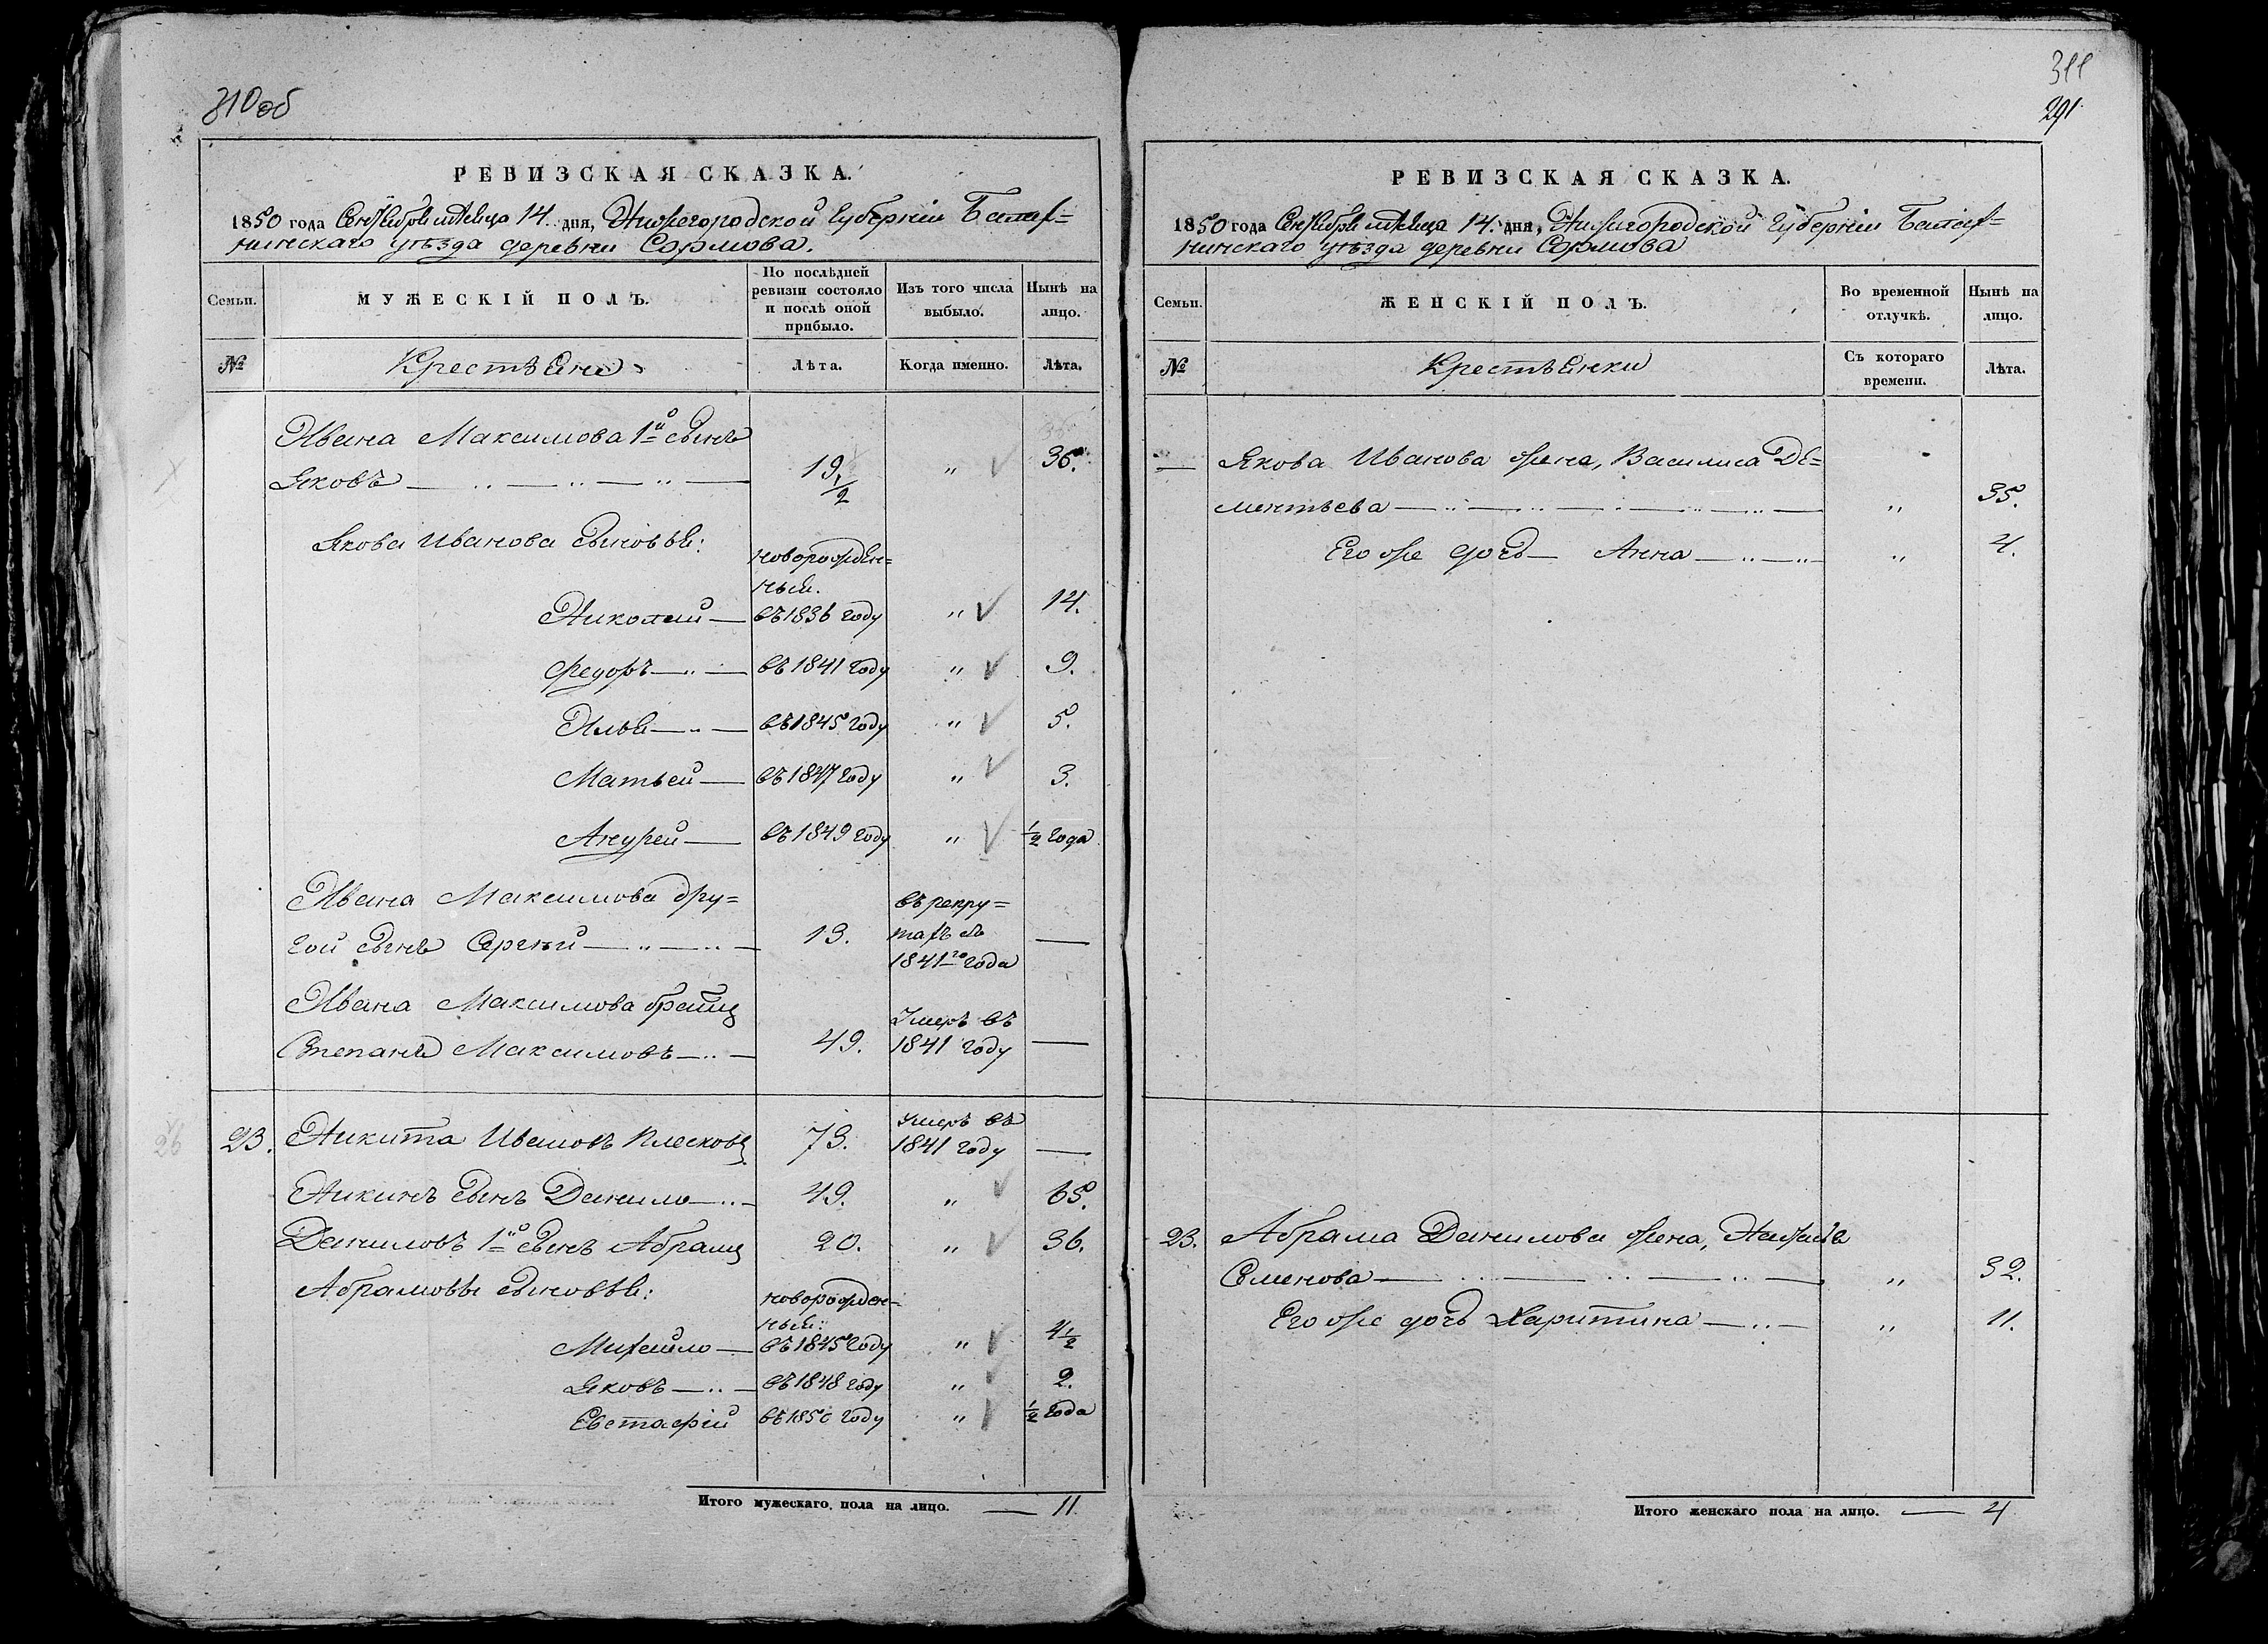 310об
РЕВИЗСКАЯ СКАЗКА.
1850 года Сентября месяца 14. дня, Нижегородской Губерніи Балах=
нинскаго уѣзда деревни Сормова.
Семьи.
МУЖЕСКІЙ ПОЛЪ.
По послѣдней ревизіи состояло и послѣ оной прибыло.
Изъ того числа выбыло.
Нынѣ на лицо.
№
Крестьяне
Лѣта.
Когда именно.
Лѣта.
Ивана Максимова 1й сынъ
Яковъ 19 1/2 " 36.
Якова Иванова сыновья:
новорожден=
ные.
Николай въ 1836 году " 14.
Федоръ въ 1841 году " 9.
Илья въ 1845 году " 5.
Матвей въ 1847 году " 3.
Андрей въ 1849 году " 1/2 года
Ивана Максимова дру=
въ рекру=
гой сынъ Сергѣй 13. тахъ съ
1841го года
Ивана Максимова братъ
Степанъ Максимовъ 49. Умеръ въ
1841 году
23. Никита Ивановъ Плесковъ 73. Умеръ въ
1841 году
Никинъ сынъ Данило 49. " 65.
Даниловъ 1й сынъ Абрамъ 20. " 36.
Абрамовы сыновья:
новорожден=
ные:
Михайло въ 1845 году " 4 1/2
Яковъ въ 1848 году " 2.
Евстафій въ 1850 году " 1/2 года
Итого мужескаго пола на лицо. 11.
26
311
291
РЕВИЗСКАЯ СКАЗКА.
1850 года Сентября месяца 14. дня, Нижегородской Губерніи Балах=
нинскаго уѣзда деревни Сормова
Семьи.
ЖЕНСКІЙ ПОЛЪ.
Во временной отлучкѣ.
Нынѣ на лицо.
№
Крестьянки
Съ котораго времени.
Лѣта.
Якова Иванова жена, Василиса Де=
ментьева " 35.
Его же дочь Анна " 4.
23. Абрама Данилова жена,
Семенова " 32.
Его же дочь Харитина " 11.
Итого женскаго пола на лицо. 4